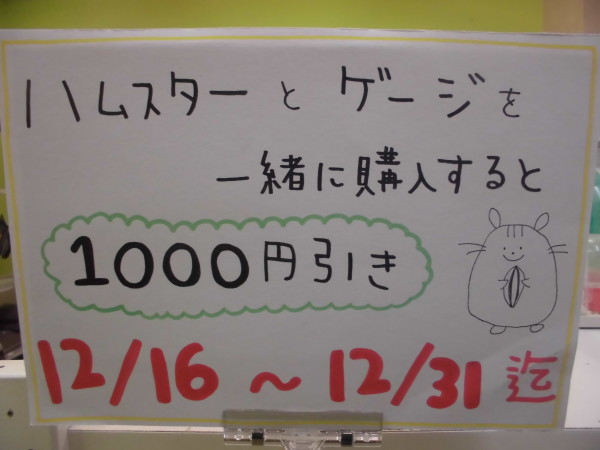 ハムスターと ゲージを
一緒に購入すると
1000円引き
12/16 ~ 12/31 迄